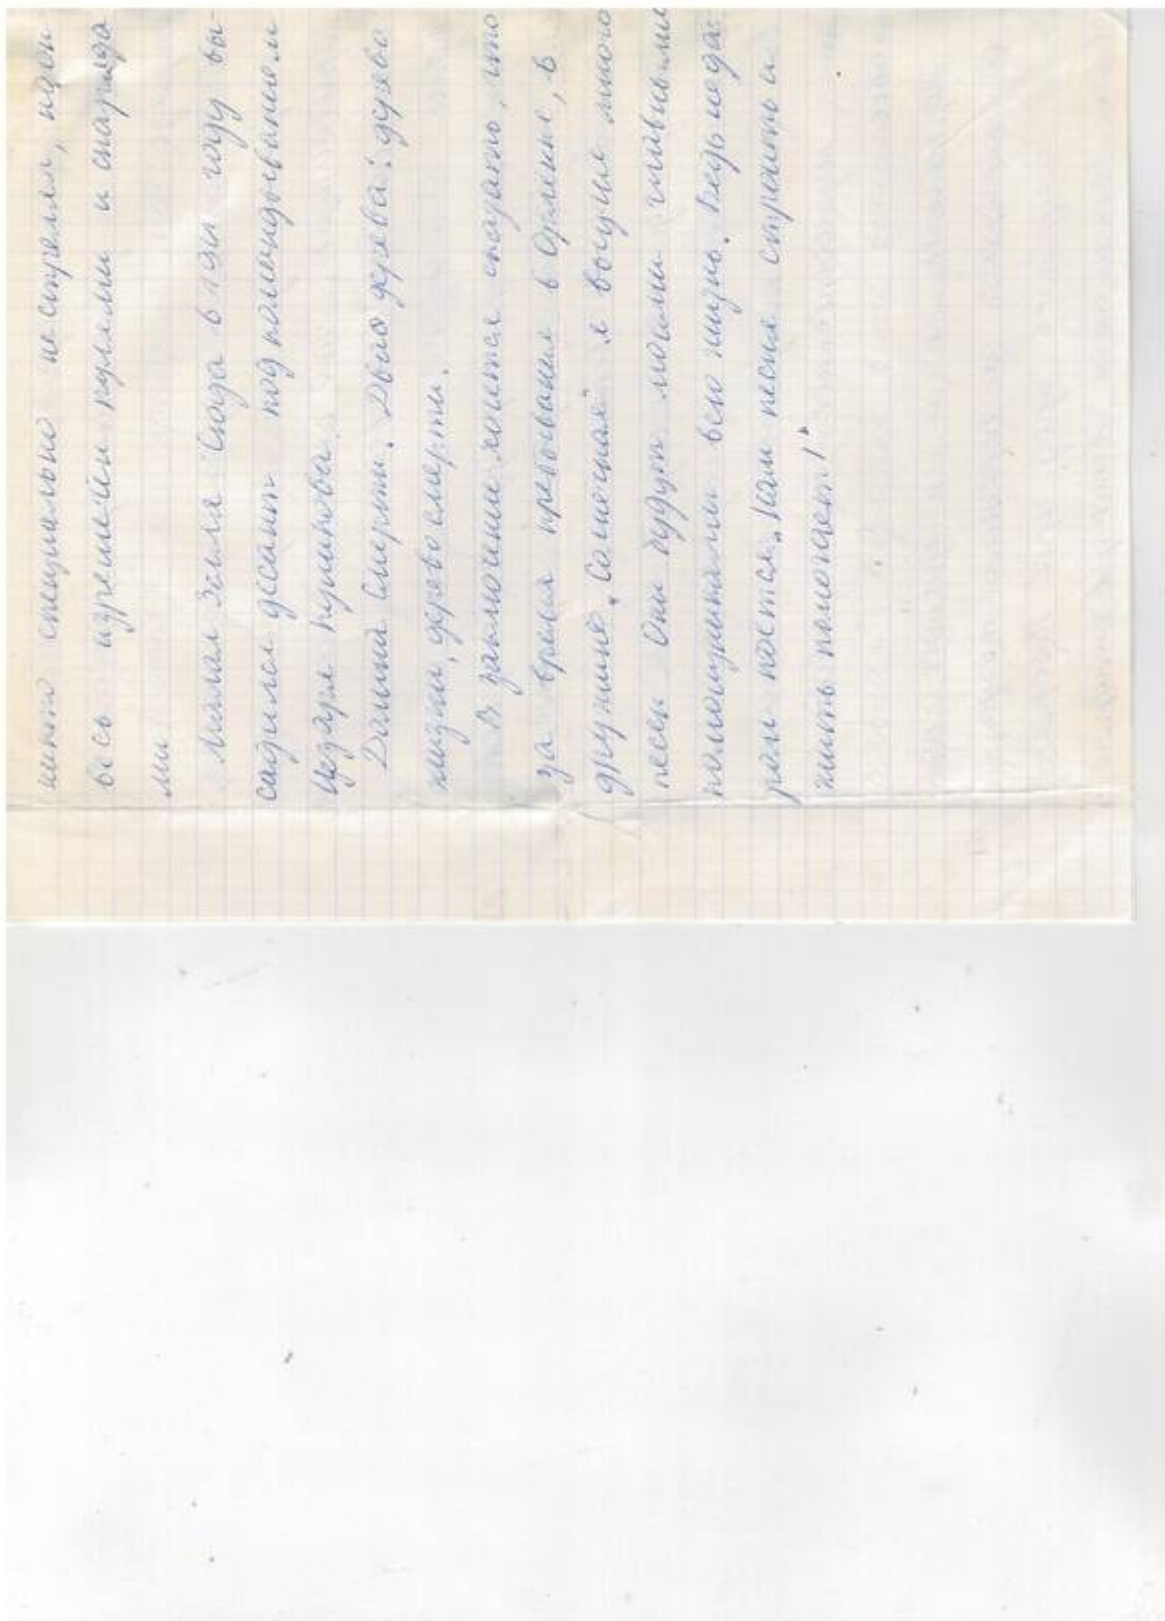 никто специально не стрелял, идеи
весь изрешечён пулями и снаряда
ми
Малая Земля Сюда в 1941 году вы-
садился десант под командыванием
Цезаря Куникова.
Долина Смерти. Двао дерева: дерево
жизни, дерево смерти.
В заключение хочется сказать, что
за время пребывания в Орленке, в
дружине "Солнечная" я выучил много
песен Они будут моими главными
помощниками всю жизнь. Ведь неда-
ром поется "Нам песня строить и
жить помогает!"